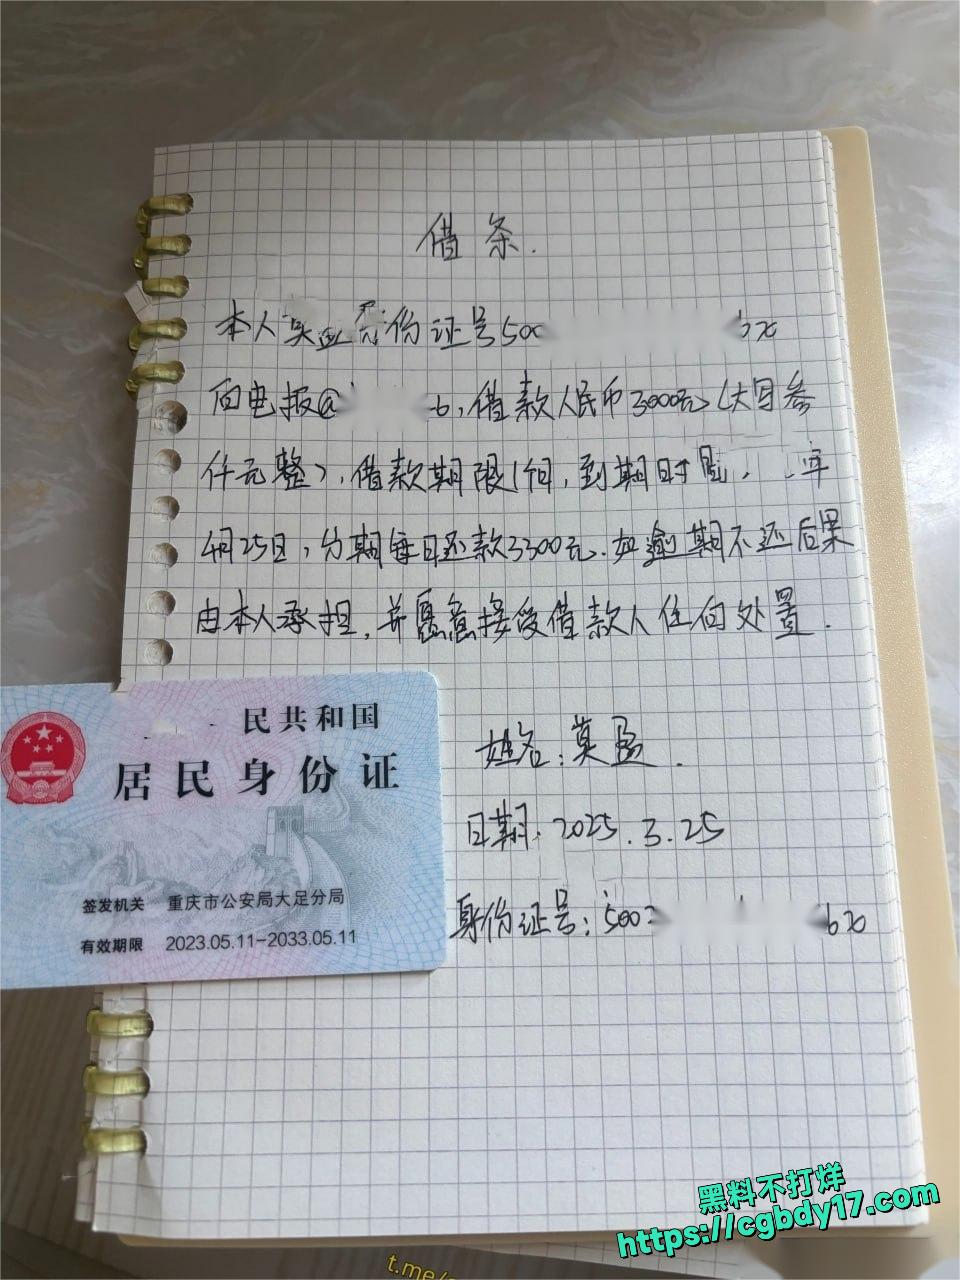 借条.
本人莫 份证号500 6x
向电报@ 6,借款人民币3000元(大写叁
仟元整),借款期限1个月,到期时 年
4月25日,分期每日还款3300元.如逾期不还后果
由本人承担,并愿意接受借款人任何处置.
民共和国
居民身份证
姓名:莫
日期:2025.3.25
签发机关 重庆市公安局大足分局
身份证号:500 6x
有效期限 2023.05.11-2033.05.11
黑料不打烊
https://cgbdy17.com
t.me/